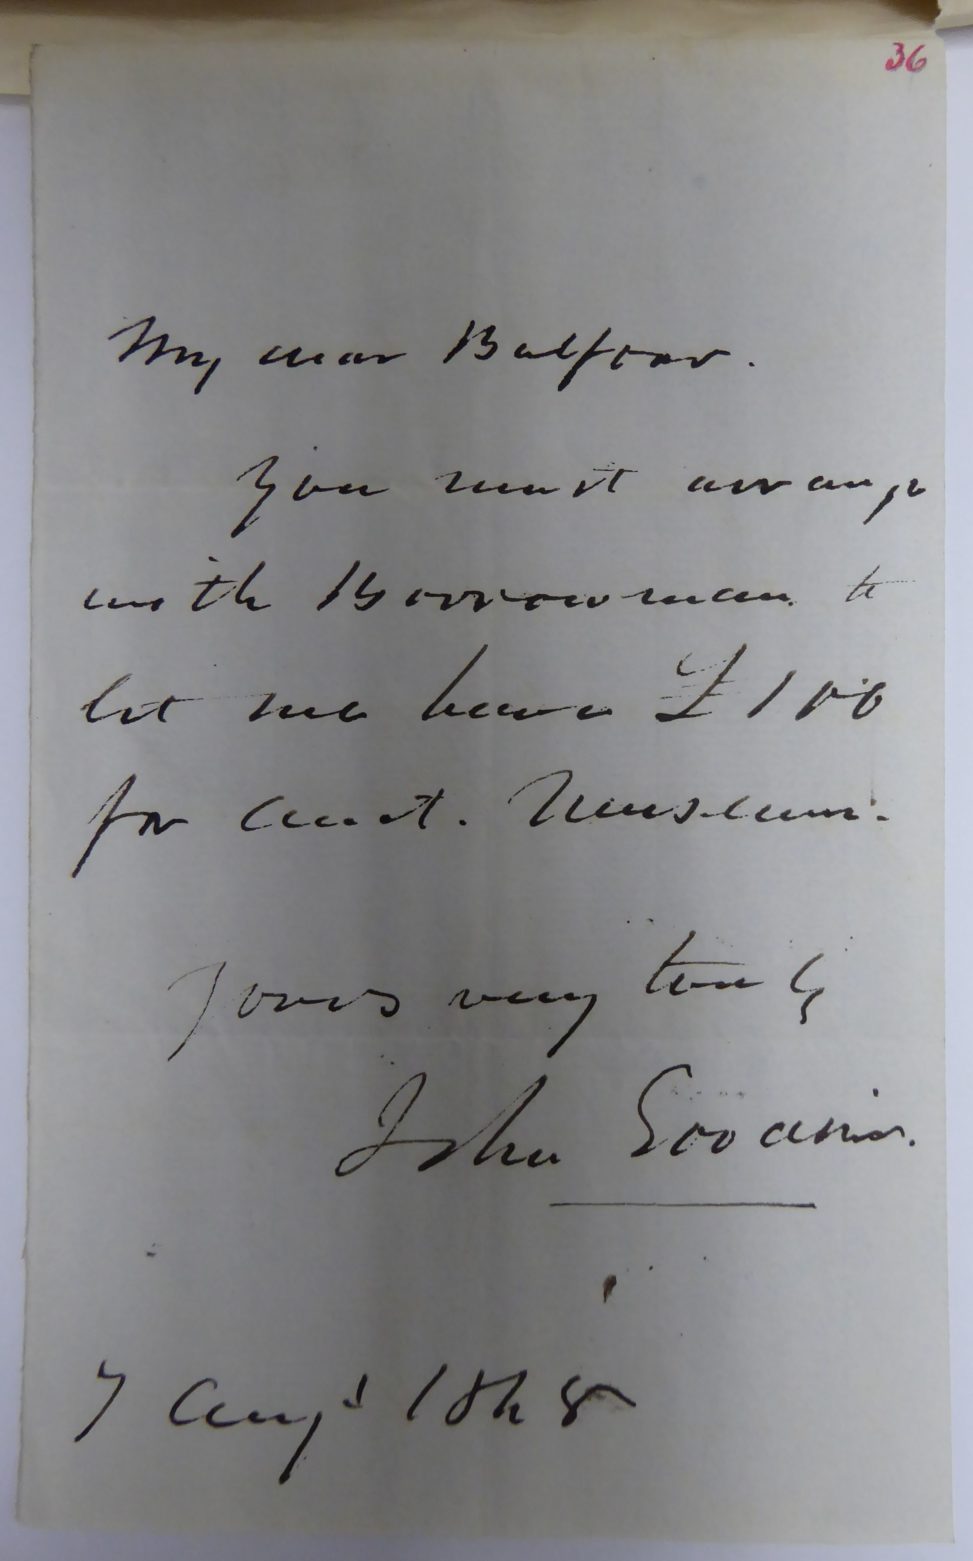 36
My dear Balfour.
You must arrange
with Borrowman to
let me have £100
for Anat. Museum.
Yours very truly
John Goodsir.
7 Augt